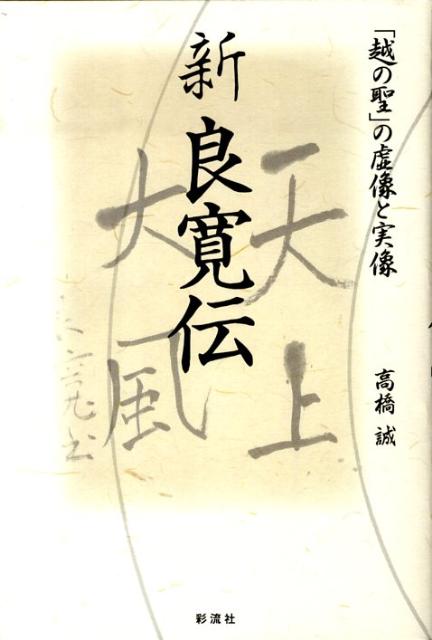 「越の聖」の虚像と実像
高橋誠
新
良寛伝
天上
大風
良寛書
彩流社